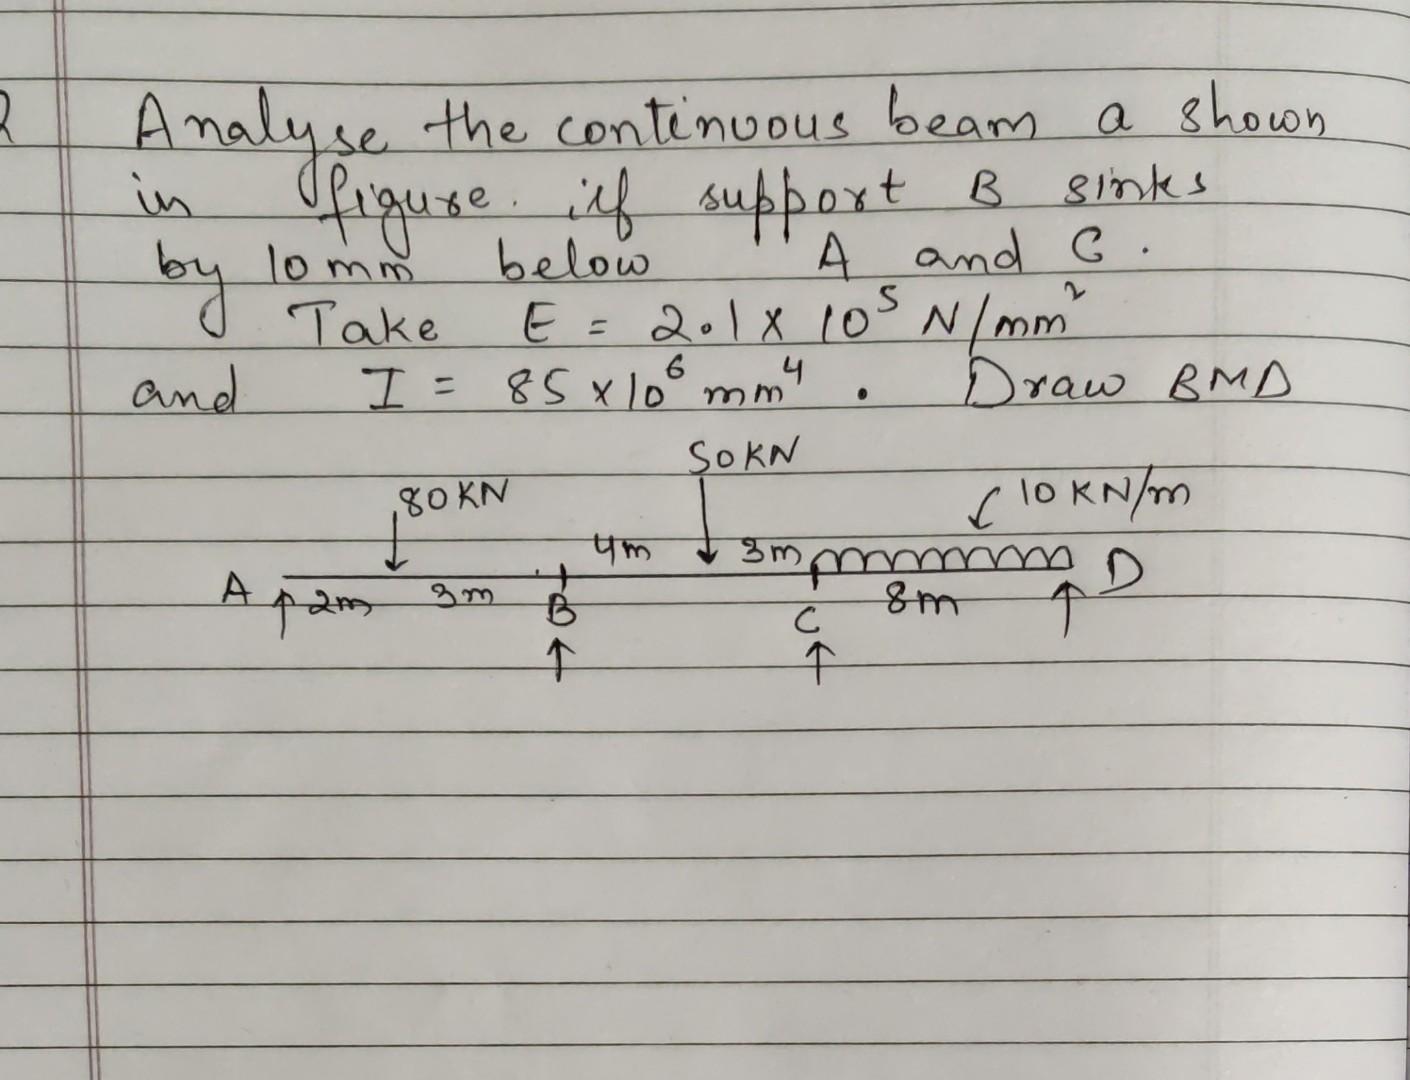 2 Analyse the continuous beam a shown
in figure. if support B sinks
by 10 mm below A and C.
Take E = 2.1 x 10⁵ N/mm²
and I = 85 x 10⁶ mm⁴. Draw BMD
50 KN
80 KN 10 KN/m
4m 3m
A 2m 3m B C 8m D